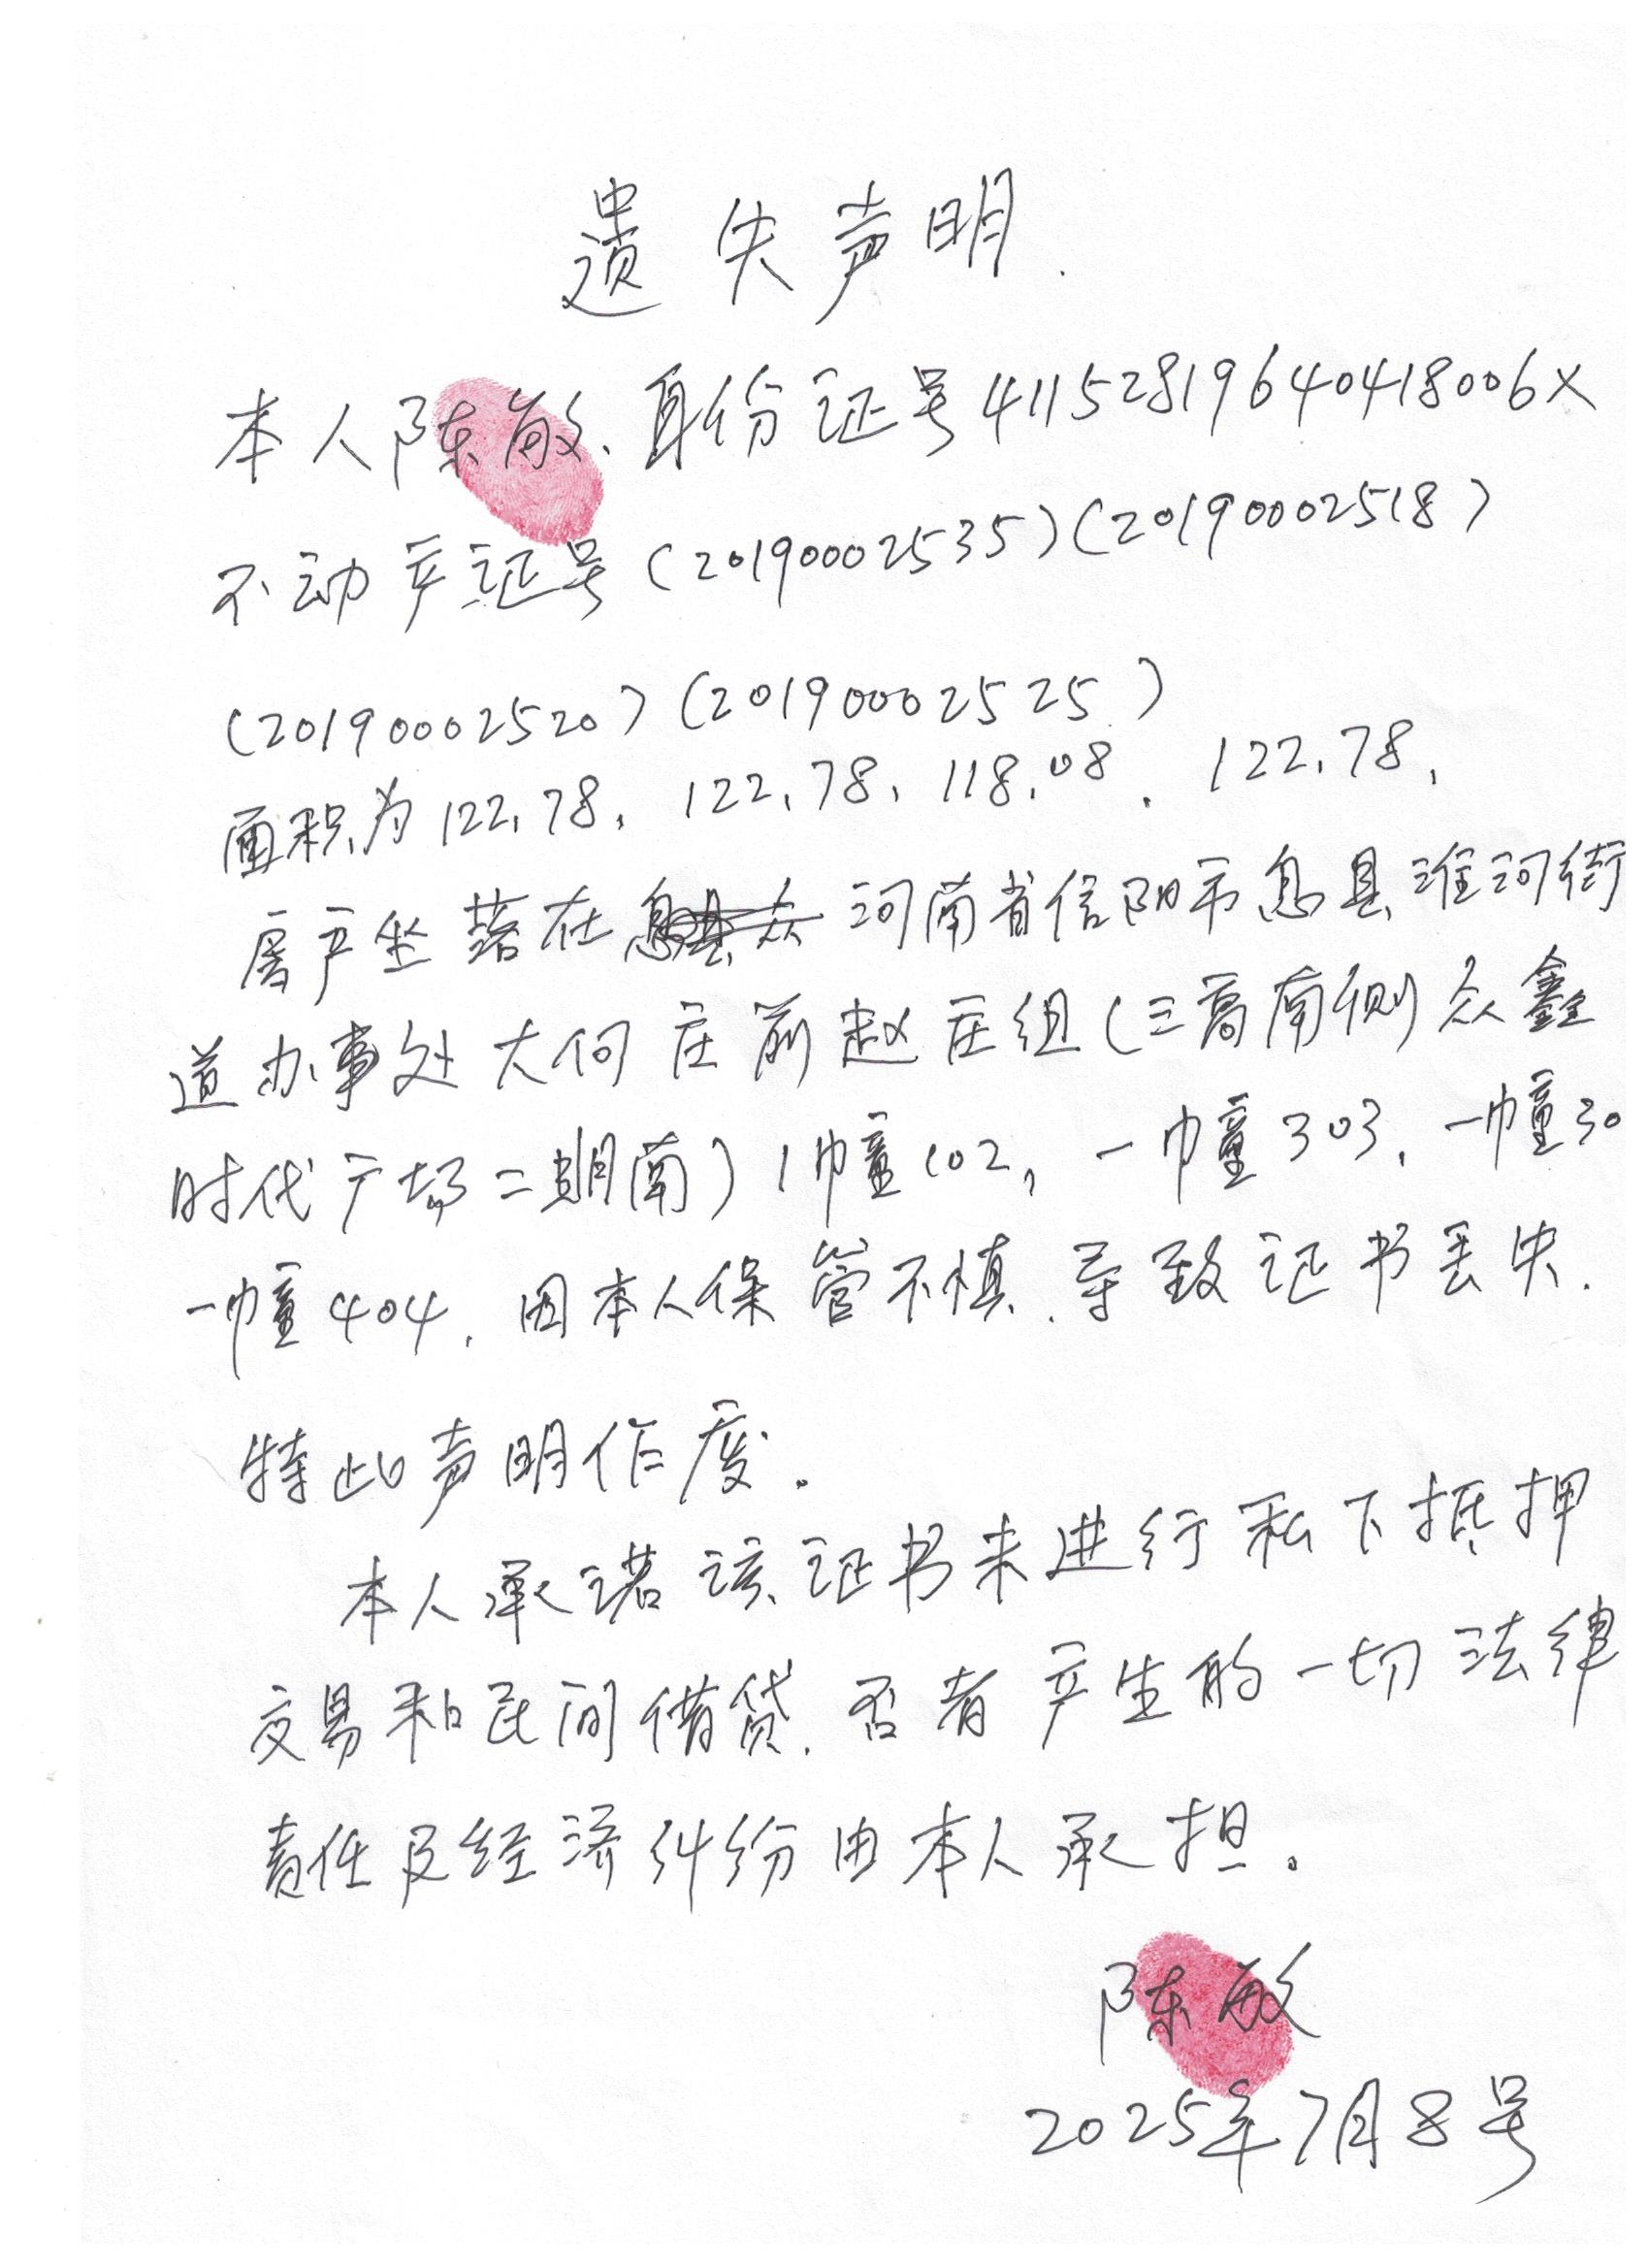 遗失声明.
本人陈敏、身份证号41152819640418006X
不动产证号(20190002535)(20190002518)
(20190002520)(20190002525)
面积为122.78、122.78、118.08、122.78、
房产坐落在河南省信阳市息县淮河街
道办事处大何庄前赵庄组(三高南侧)众鑫
时代广场二期南)1幢102,一幢303、一幢30
一幢404、因本人保管不慎、导致证书丢失.
特此声明作废.
本人承诺该证书未进行私下抵押
交易和民间借贷.否者产生的一切法律
责任及经济纠纷由本人承担。
陈敏
2025年7月8号